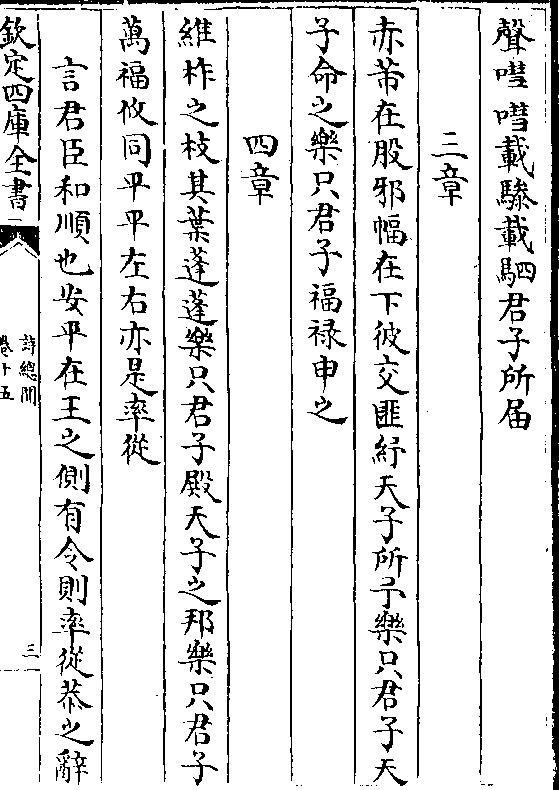 聲嘒嘒載驂載駟君子所届
三章
赤芾在股邪幅在下彼交匪紓天子所予樂只君子天
子命之樂只君子福禄申之
四章
維柞之枝其葉蓬蓬樂只君子殿天子之邦樂只君子
萬福攸同平平左右亦是率從
言君臣和順也安平在王之側有令則率從恭之辭
欽定四庫全書
詩總聞
卷十五
三